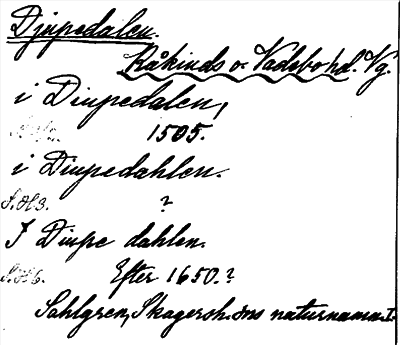 Djupedalen.
Kåkinds o. Vadsbo hd. Vg.
i Diupedalen,
1505.
i Diupedahlen.
S. H3. ?
I Diupe dahlen.
S. H6. Efter 1650.?
Sahlgren, Skagersh. sns naturnamn I.